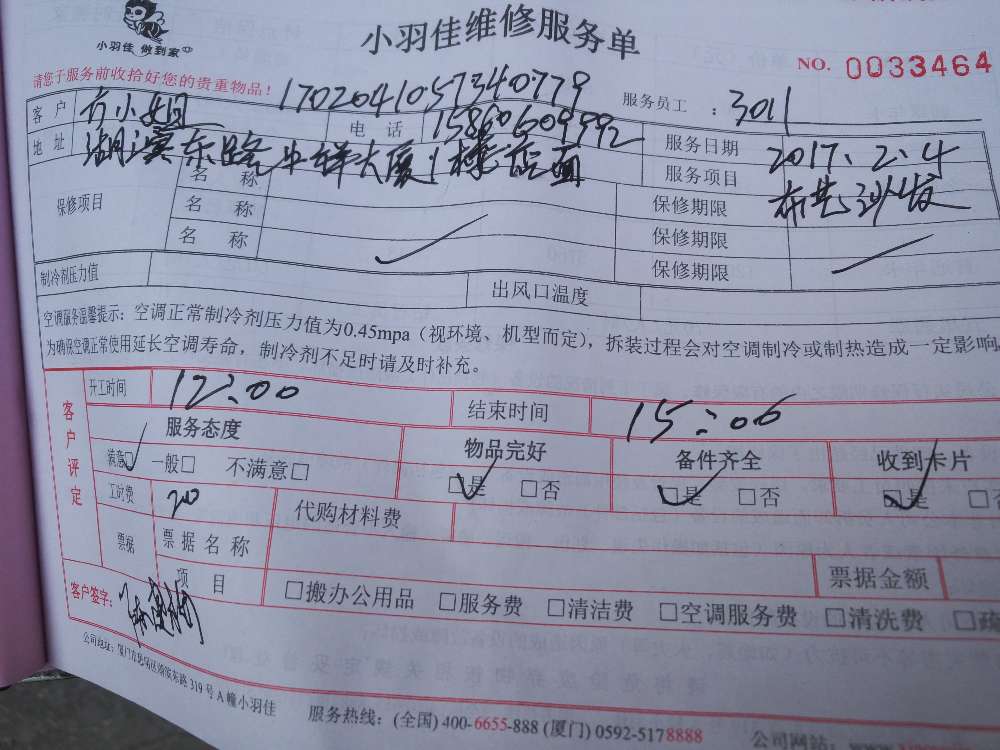 小羽佳 做到家
小羽佳维修服务单
NO. 0033464
请您于服务前收拾好您的贵重物品!
1702041057340779
服务员工 : 3011
客户 方小姐 电话 15860609992 服务日期 2017、2、4
地址 湖滨东路 大厦1楼店面 服务项目 布艺沙发
保修项目 名称 保修期限
名称 保修期限
名称 保修期限
制冷剂压力值 出风口温度
空调服务温馨提示:空调正常制冷剂压力值为0.45mpa(视环境、机型而定),拆装过程会对空调制冷或制热造成一定影响,
为确保空调正常使用延长空调寿命,制冷剂不足时请及时补充。
客户评定
开工时间 12:00 结束时间 15:06
服务态度 物品完好 备件齐全 收到卡片
满意□ 一般□ 不满意□ □是 □否 □是 □否 □是 □否
工时费 20 代购材料费
票据 票据名称 票据金额
项目 □搬办公用品 □服务费 □清洁费 □空调服务费 □清洗费 □疏
客户签字:
公司地址:厦门市思明区湖滨东路 319 号 A 幢小羽佳 服务热线:(全国) 400-6655-888 (厦门) 0592-5178888 公司网站: